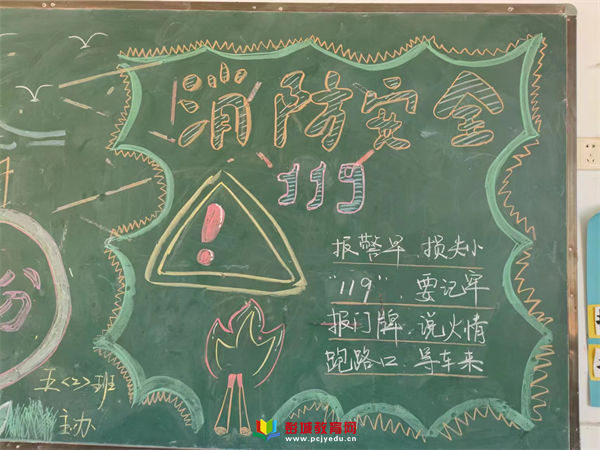 消防安全
119
报警早、损失小
“119”、要记牢
报门牌、说火情
跑路口、导车来
五<2>班
主办
彭城教育网
www.pcjyedu.cn